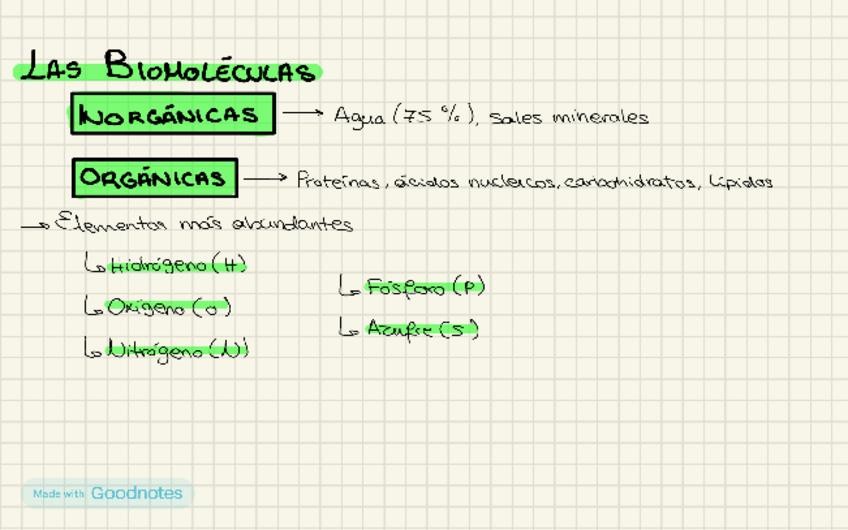 LAS BIOMOLÉCULAS
INORGÁNICAS → Agua (75 %), sales minerales
ORGÁNICAS → Proteínas, ácidos nucleicos, carbohidratos, Lípidos
→ Elementos más abundantes
↳ Hidrógeno (H)
↳ Oxígeno (O)
↳ Nitrógeno (N)
↳ Fósforo (P)
↳ Azufre (S)
Made with Goodnotes